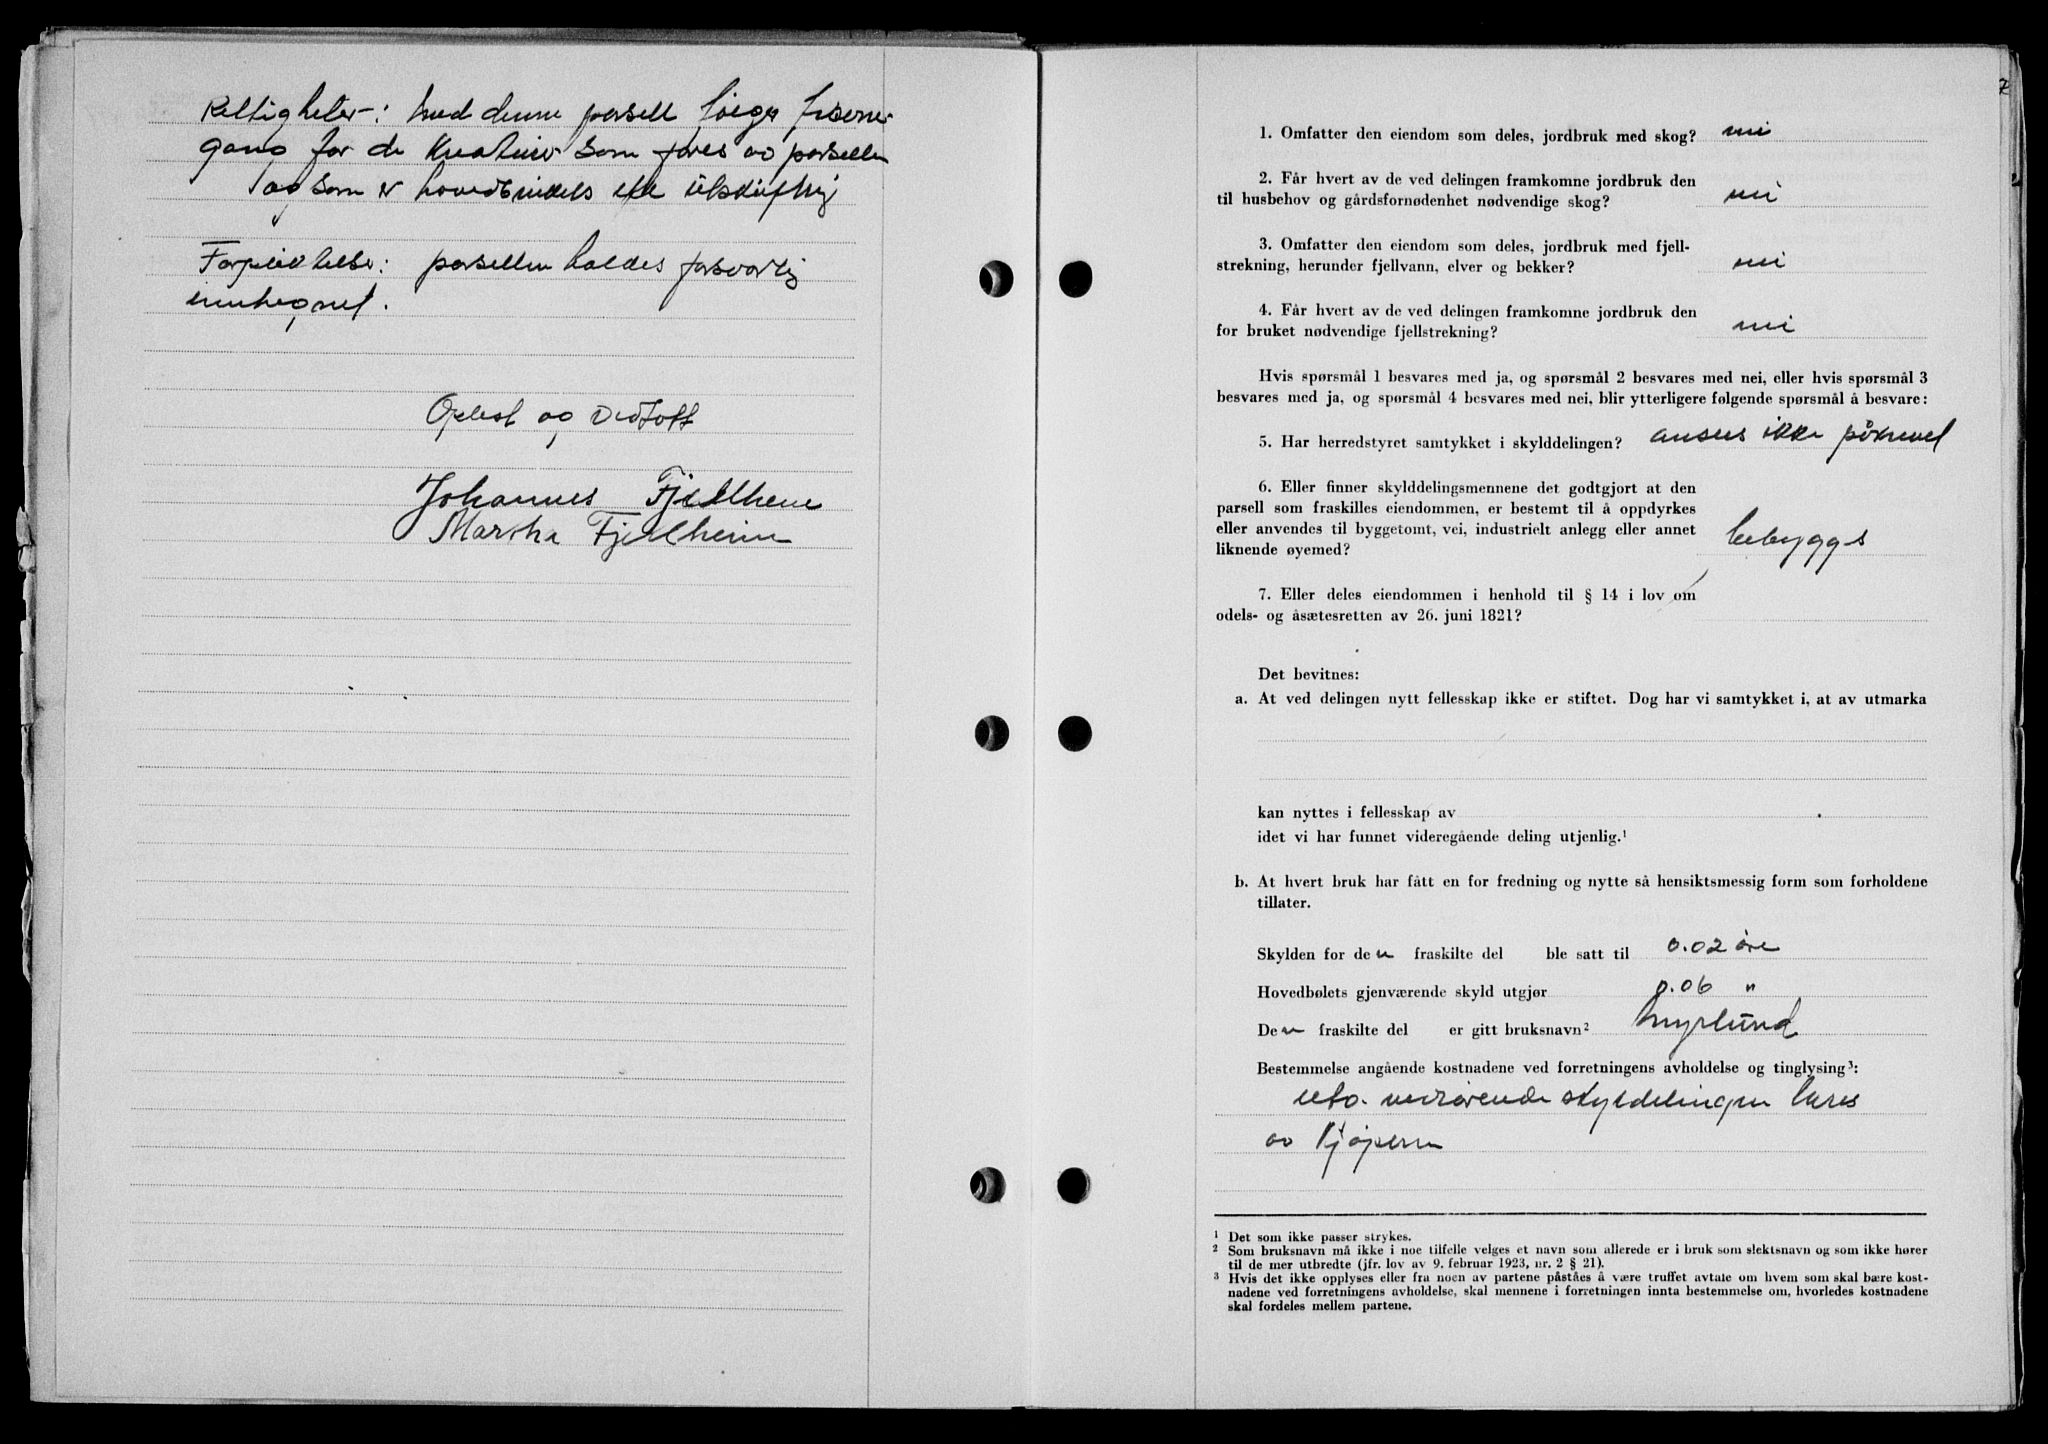 Rettigheter: med denne parsell følger
gang for de som føres av parsellen
og som er utskiftning
Forpliktelser: parsellen holdes forsvarlig
innhegnet.
Oplest og vedtatt
Johannes Fjellheim
Martha Fjellheim
7
1. Omfatter den eiendom som deles, jordbruk med skog? nei
2. Får hvert av de ved delingen framkomne jordbruk den
til husbehov og gårdsfornødenhet nødvendige skog? nei
3. Omfatter den eiendom som deles, jordbruk med fjell-
strekning, herunder fjellvann, elver og bekker? nei
4. Får hvert av de ved delingen framkomne jordbruk den
for bruket nødvendige fjellstrekning? nei
Hvis spørsmål 1 besvares med ja, og spørsmål 2 besvares med nei, eller hvis spørsmål 3
besvares med ja, og spørsmål 4 besvares med nei, blir ytterligere følgende spørsmål å besvare:
5. Har herredstyret samtykket i skylddelingen? anses ikke påkrevet
6. Eller finner skylddelingsmennene det godtgjort at den
parsell som fraskilles eiendommen, er bestemt til å oppdyrkes
eller anvendes til byggetomt, vei, industrielt anlegg eller annet
liknende øyemed? bebygges
7. Eller deles eiendommen i henhold til § 14 i lov om
odels- og åsætesretten av 26. juni 1821?
Det bevitnes:
a. At ved delingen nytt fellesskap ikke er stiftet. Dog har vi samtykket i, at av utmarka
kan nyttes i fellesskap av
idet vi har funnet videregående deling utjenlig.¹
b. At hvert bruk har fått en for fredning og nytte så hensiktsmessig form som forholdene
tillater.
Skylden for den fraskilte del ble satt til 0.02 øre
Hovedbølets gjenværende skyld utgjør 0.06 "
Den fraskilte del er gitt bruksnavn² Myrlund
Bestemmelse angående kostnadene ved forretningens avholdelse og tinglysing³:
utg. vedrørende skylddelingen bæres
av kjøperen
¹ Det som ikke passer strykes.
² Som bruksnavn må ikke i noe tilfelle velges et navn som allerede er i bruk som slektsnavn og som ikke hører
til de mer utbredte (jfr. lov av 9. februar 1923, nr. 2 § 21).
³ Hvis det ikke opplyses eller fra noen av partene påståes å være truffet avtale om hvem som skal bære kost-
nadene ved forretningens avholdelse, skal mennene i forretningen innta bestemmelse om, hvorledes kostnadene
skal fordeles mellem partene.